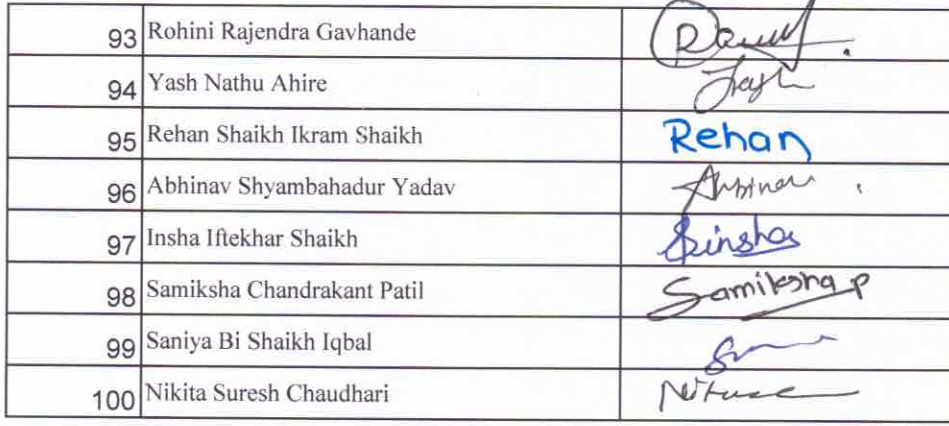 93 Rohini Rajendra Gavhande
94 Yash Nathu Ahire
95 Rehan Shaikh Ikram Shaikh Rehan
96 Abhinav Shyambahadur Yadav
97 Insha Iftekhar Shaikh
98 Samiksha Chandrakant Patil Samiksha P
99 Saniya Bi Shaikh Iqbal
100 Nikita Suresh Chaudhari